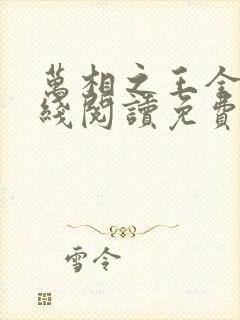 萬相之王全
綫閱讀免費
雪令